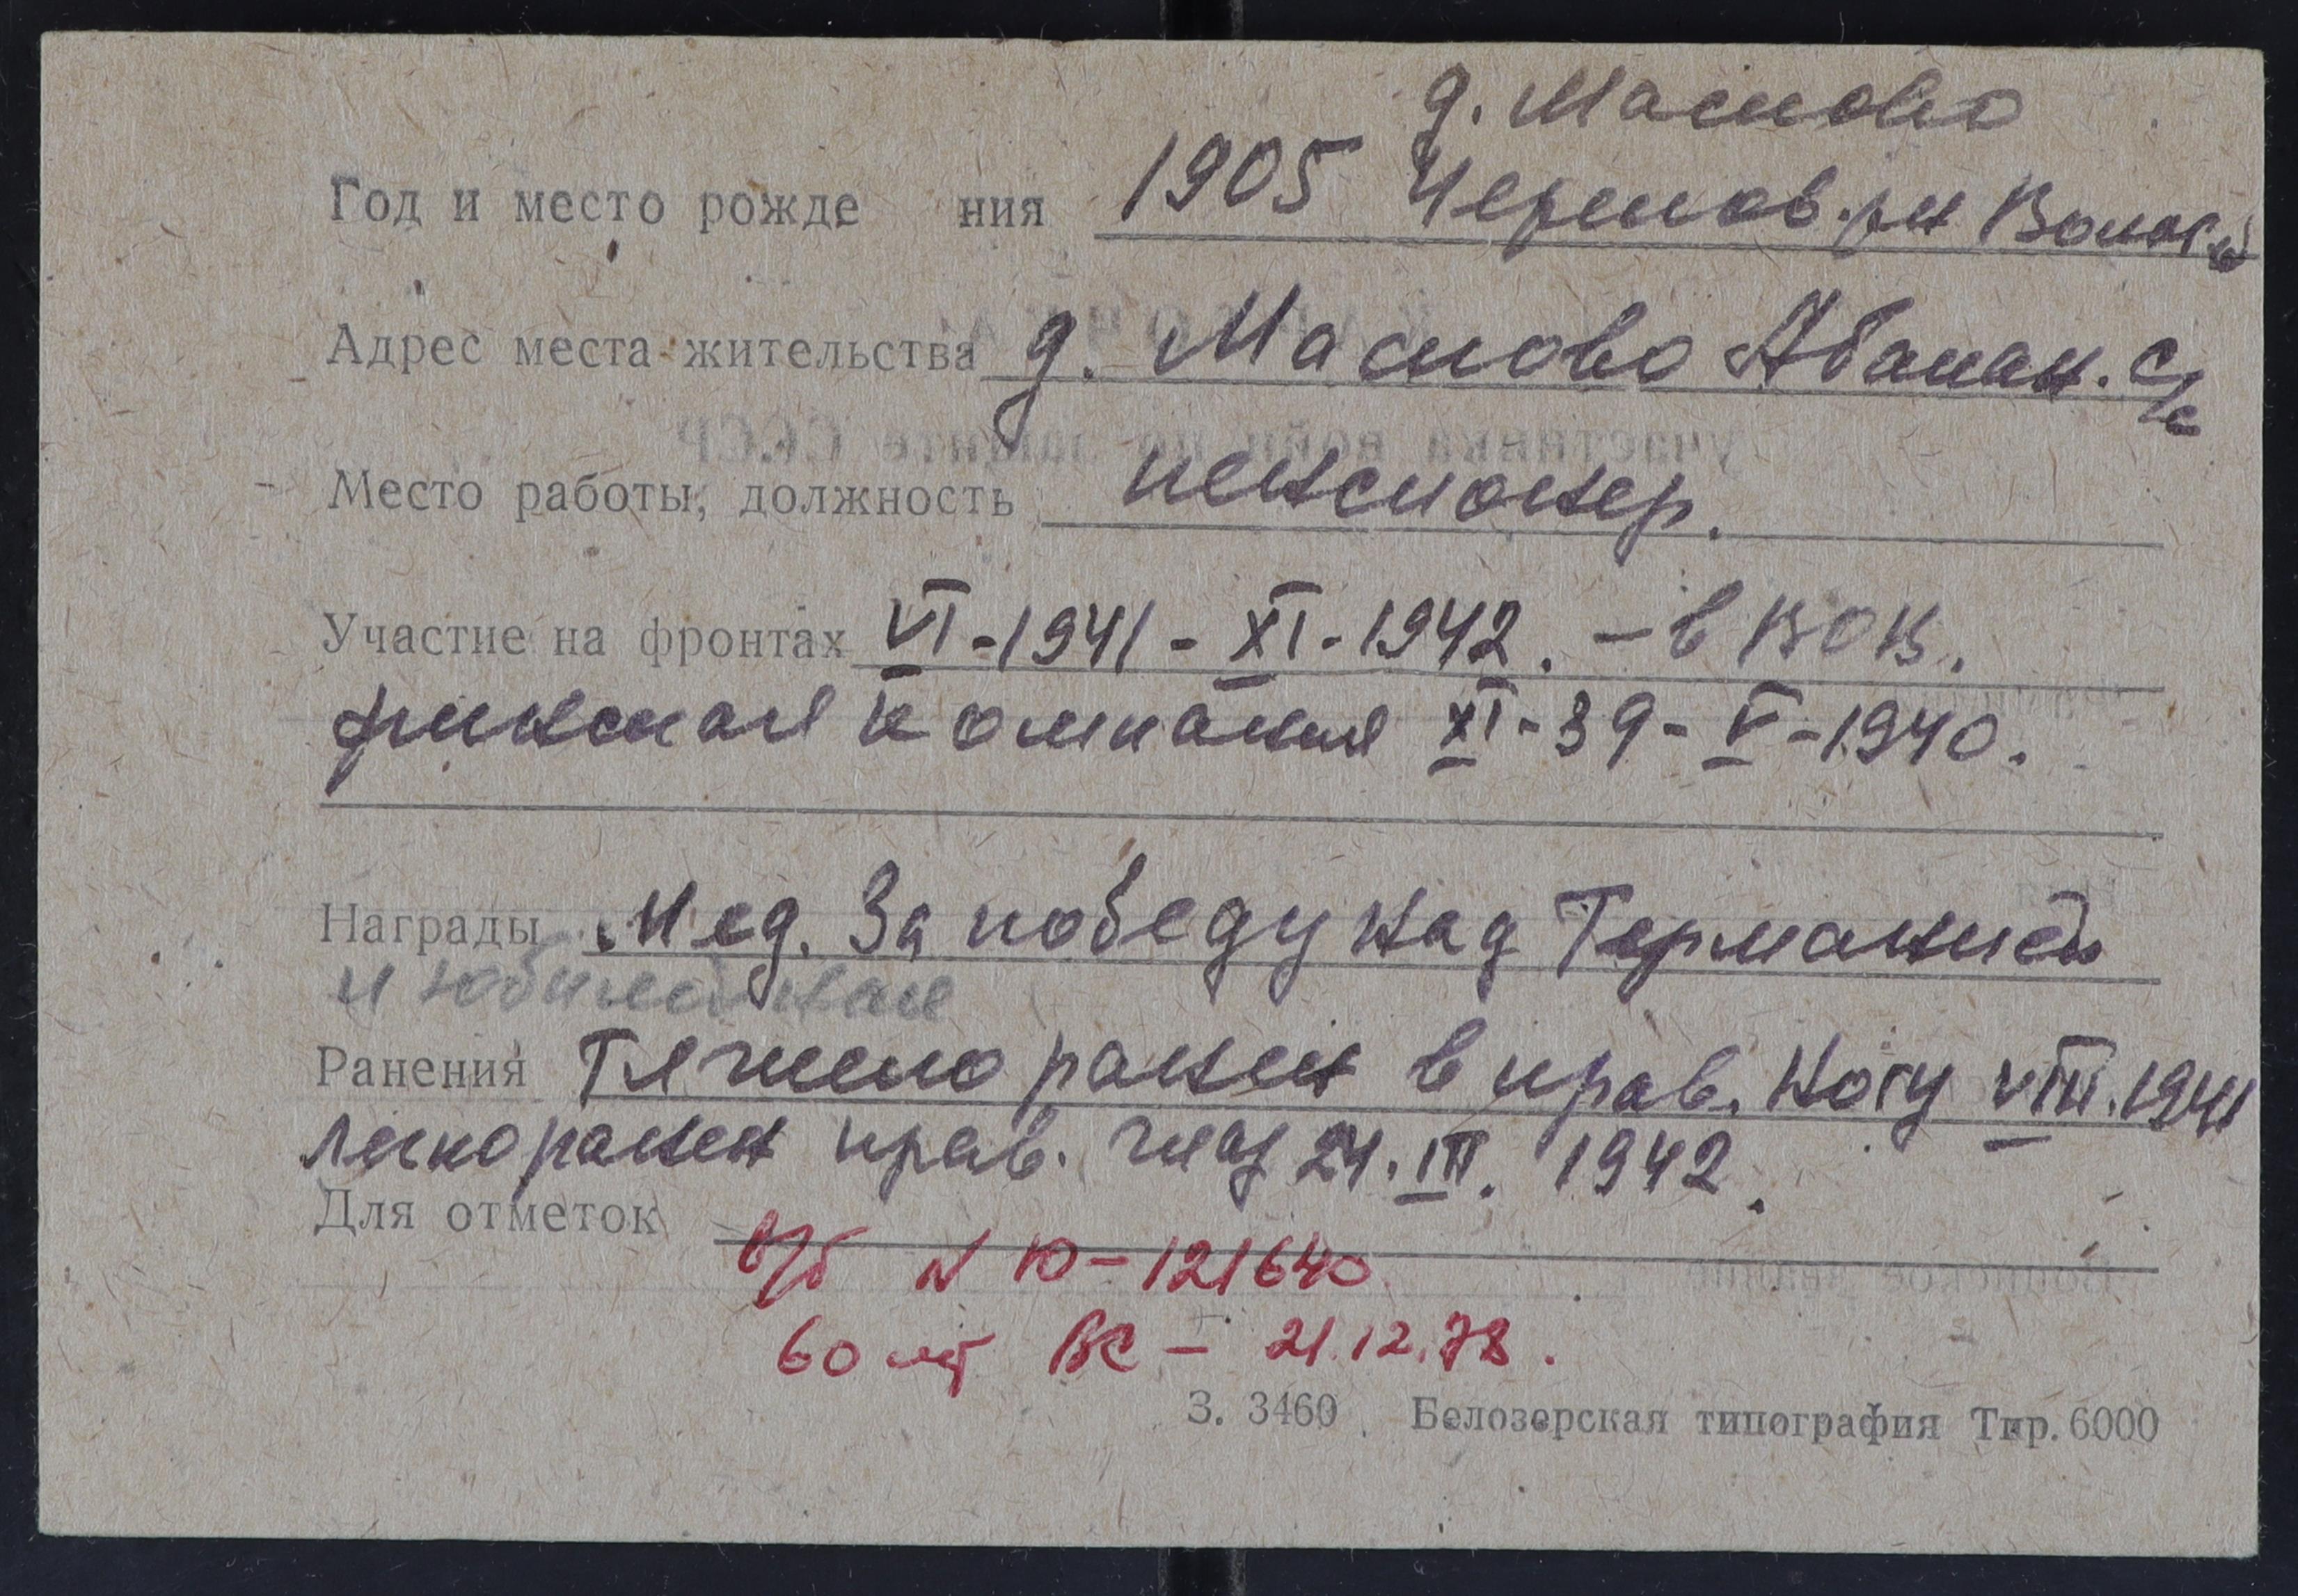 д. Маслово
Год и место рожде ния 1905 Черепов. р-н Волог.
Адрес места жительства д. Маслово Абакан. с/с
Место работы, должность пенсионер.
Участие на фронтах VI-1941-XI-1942. - в ВОВ.
финская компания XI-39-V-1940.
Награды Мед. За победу над Германией
и юбилейная
Ранения Тяжело ранен в прав. ногу VIII.1941
легко ранен прав. глаз 24.III.1942.
Для отметок
в/б N Ю-121640
60 лет ВС - 21.12.78.
З. 3460 Белозерская типография Тир. 6000